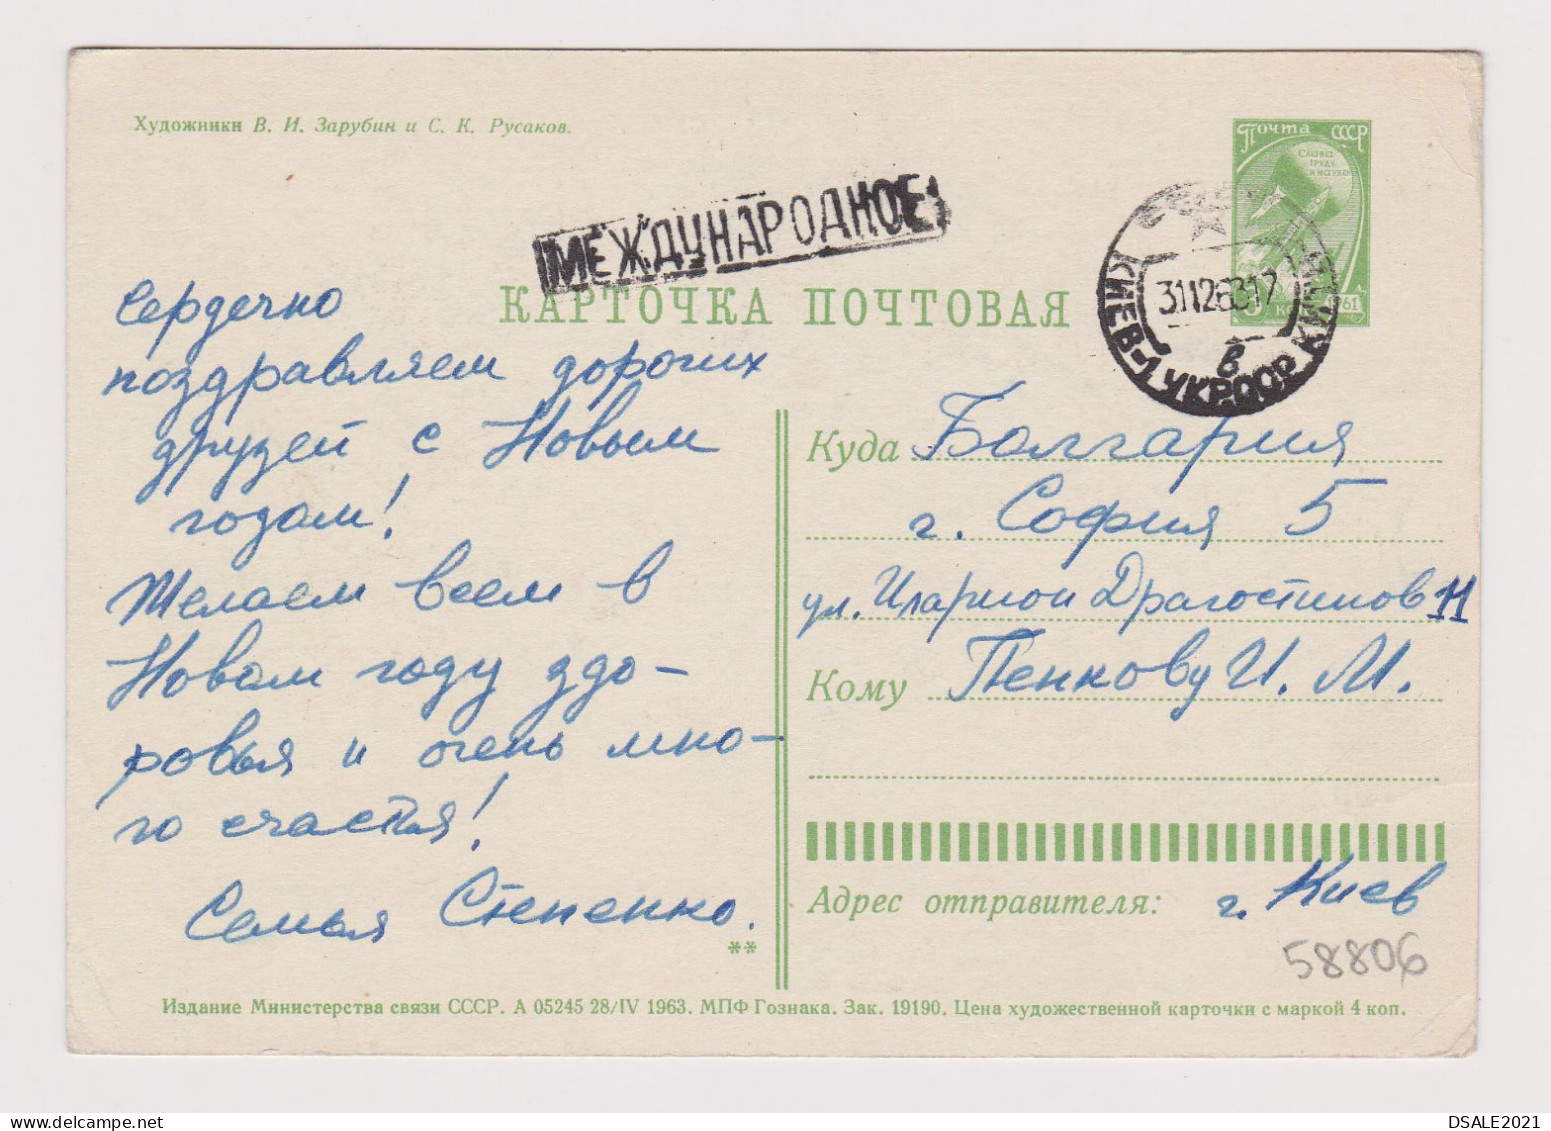 Художники В. И. Зарубин и С. К. Русаков.
Почта СССР
СЛАВА
ТРУДУ
И НАУКЕ
МЕЖДУНАРОДНОЕ
КАРТОЧКА ПОЧТОВАЯ
КИЕВ-1 УКР.ССР
в
1961
Сердечно
поздравляем дорогих
друзей с Новым
годом!
Желаем всем в
Новом году здо-
ровья и очень мно-
го счастья!
Семья Степенко.
**
Куда Болгария
г. София 5
ул. Иларион Драгостинов 11
Кому Пенкову И. М.
Адрес отправителя: г. Киев
58806
Издание Министерства связи СССР. А 05245 28/IV 1963. МПФ Гознака. Зак. 19190. Цена художественной карточки с маркой 4 коп.
DSALE2021